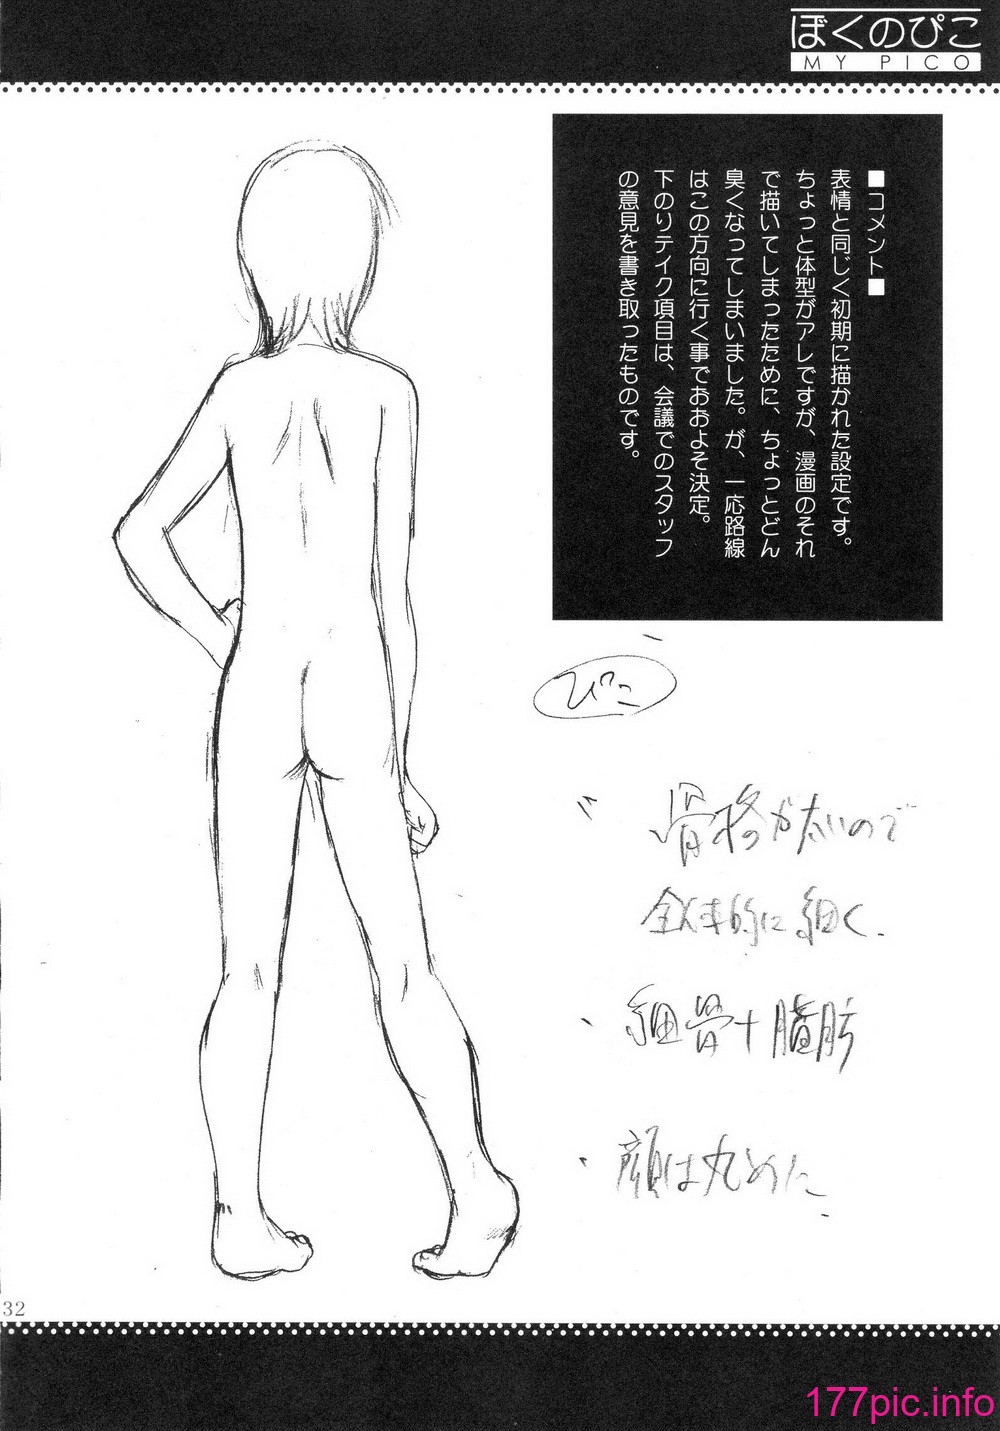 ぼくのぴこ
MY PICO
■コメント■
表情と同じく初期に描かれた設定です。
ちょっと体型がアレですが、漫画のそれ
で描いてしまったために、ちょっとどん
臭くなってしまいました。が、一応路線
はこの方向に行く事でおおよそ決定。
下のリテイク項目は、会議でのスタッフ
の意見を書き取ったものです。
ぴこ
骨格が太いので
全体的に細く.
細骨+脂肪
顔は丸めに
32
177pic.info